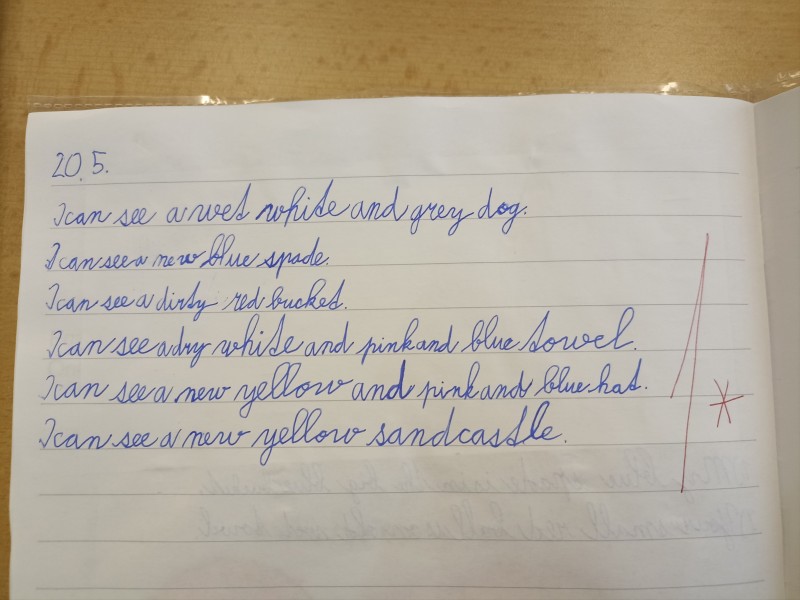 20.5.
I can see a wet white and grey dog.
I can see a new blue spade.
I can see a dirty red bucket.
I can see a dry white and pink and blue towel.
I can see a new yellow and pink and blue hat.
I can see a new yellow sandcastle.
1*